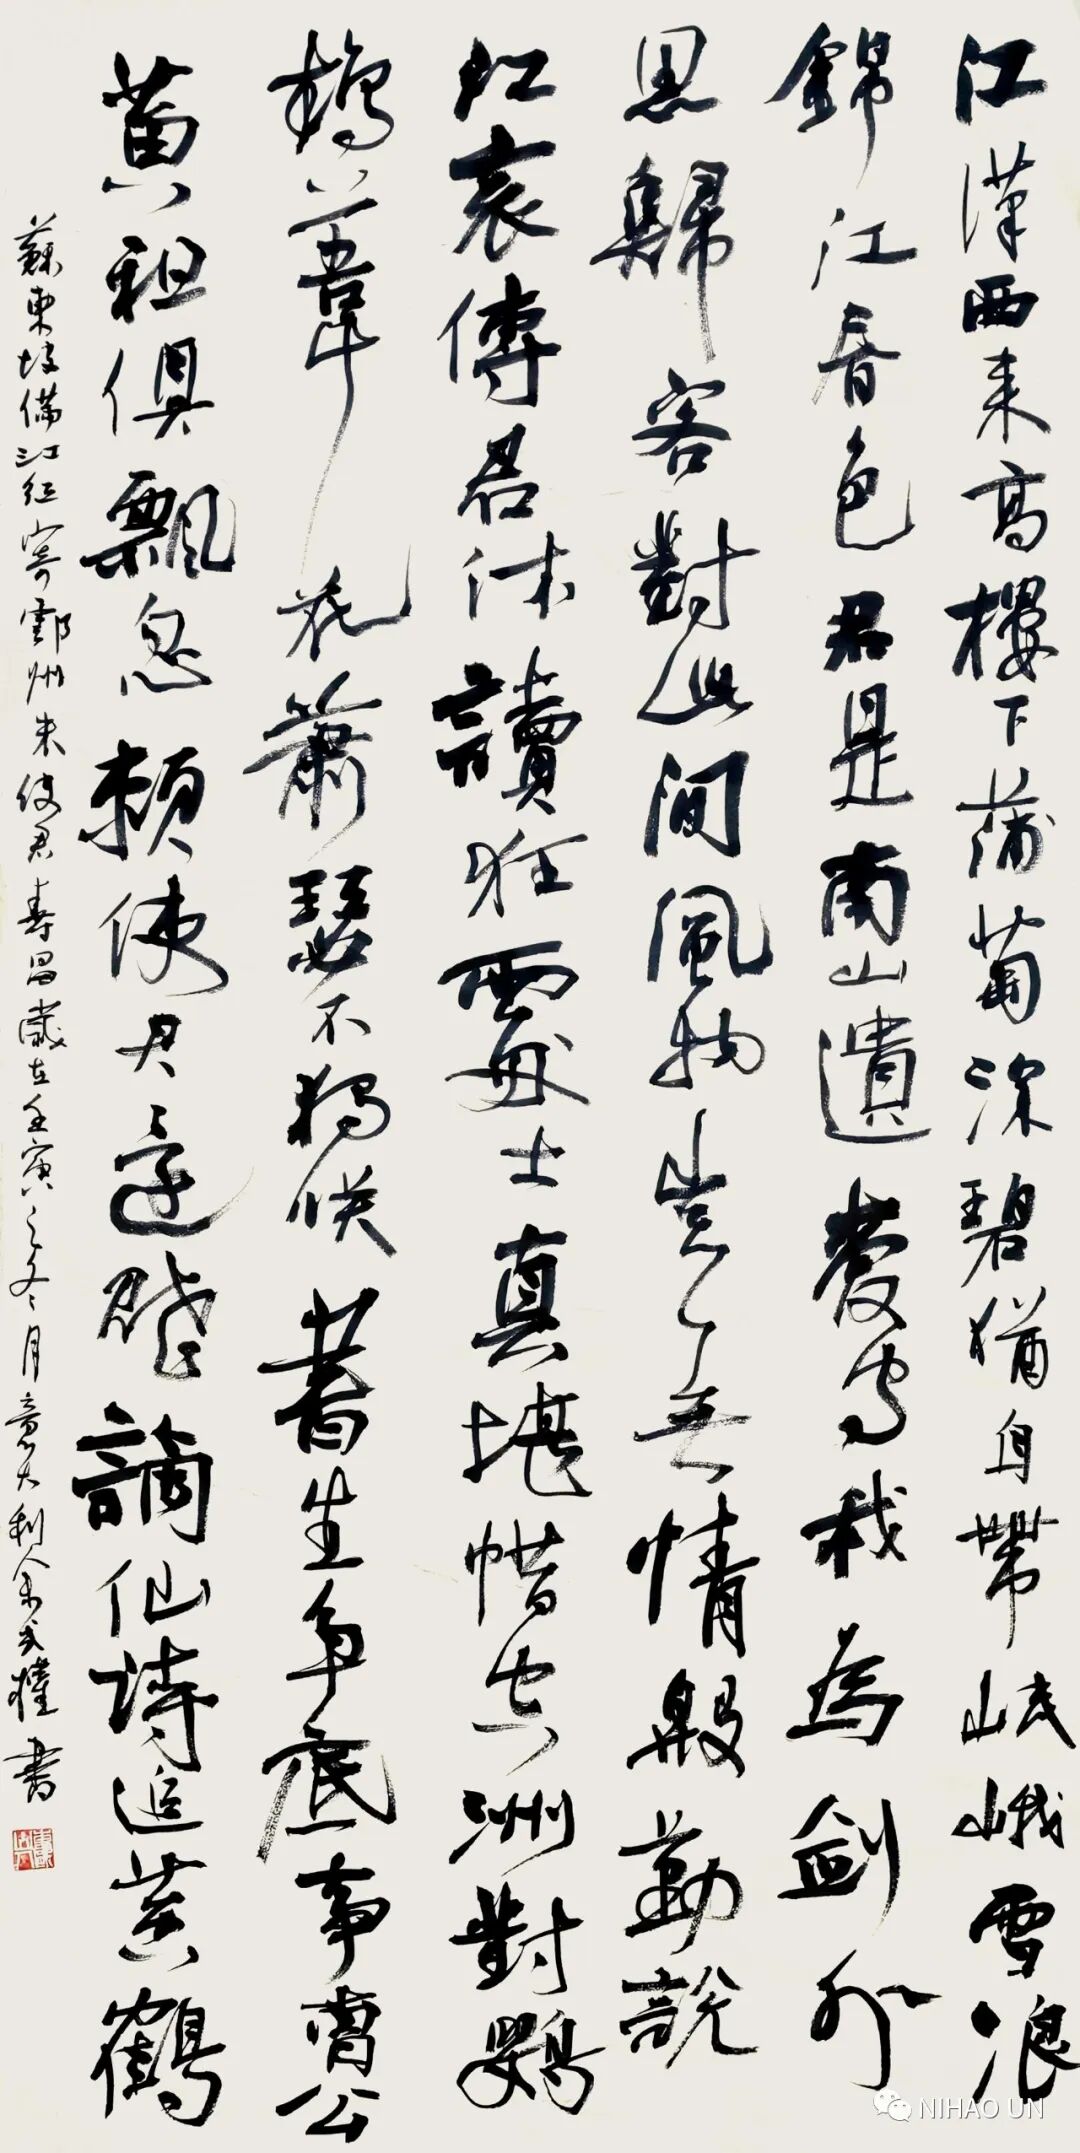 江漢西来高樓下蒲萄深碧猶自帶岷峨雪浪
錦江春色君是南山遺愛守我為劍外
思歸客對此間風物豈無情殷勤說
江表傳君休讀狂處士真堪惜空洲對鸚
鵡葦花蕭瑟不獨咲書生爭底事曹公
黄祖俱飄忽願使君還賦謫仙詩追黄鶴
蘇東坡滿江红寄鄂州朱使君壽昌歲在壬寅之冬月意大利余書
NIHAO UN